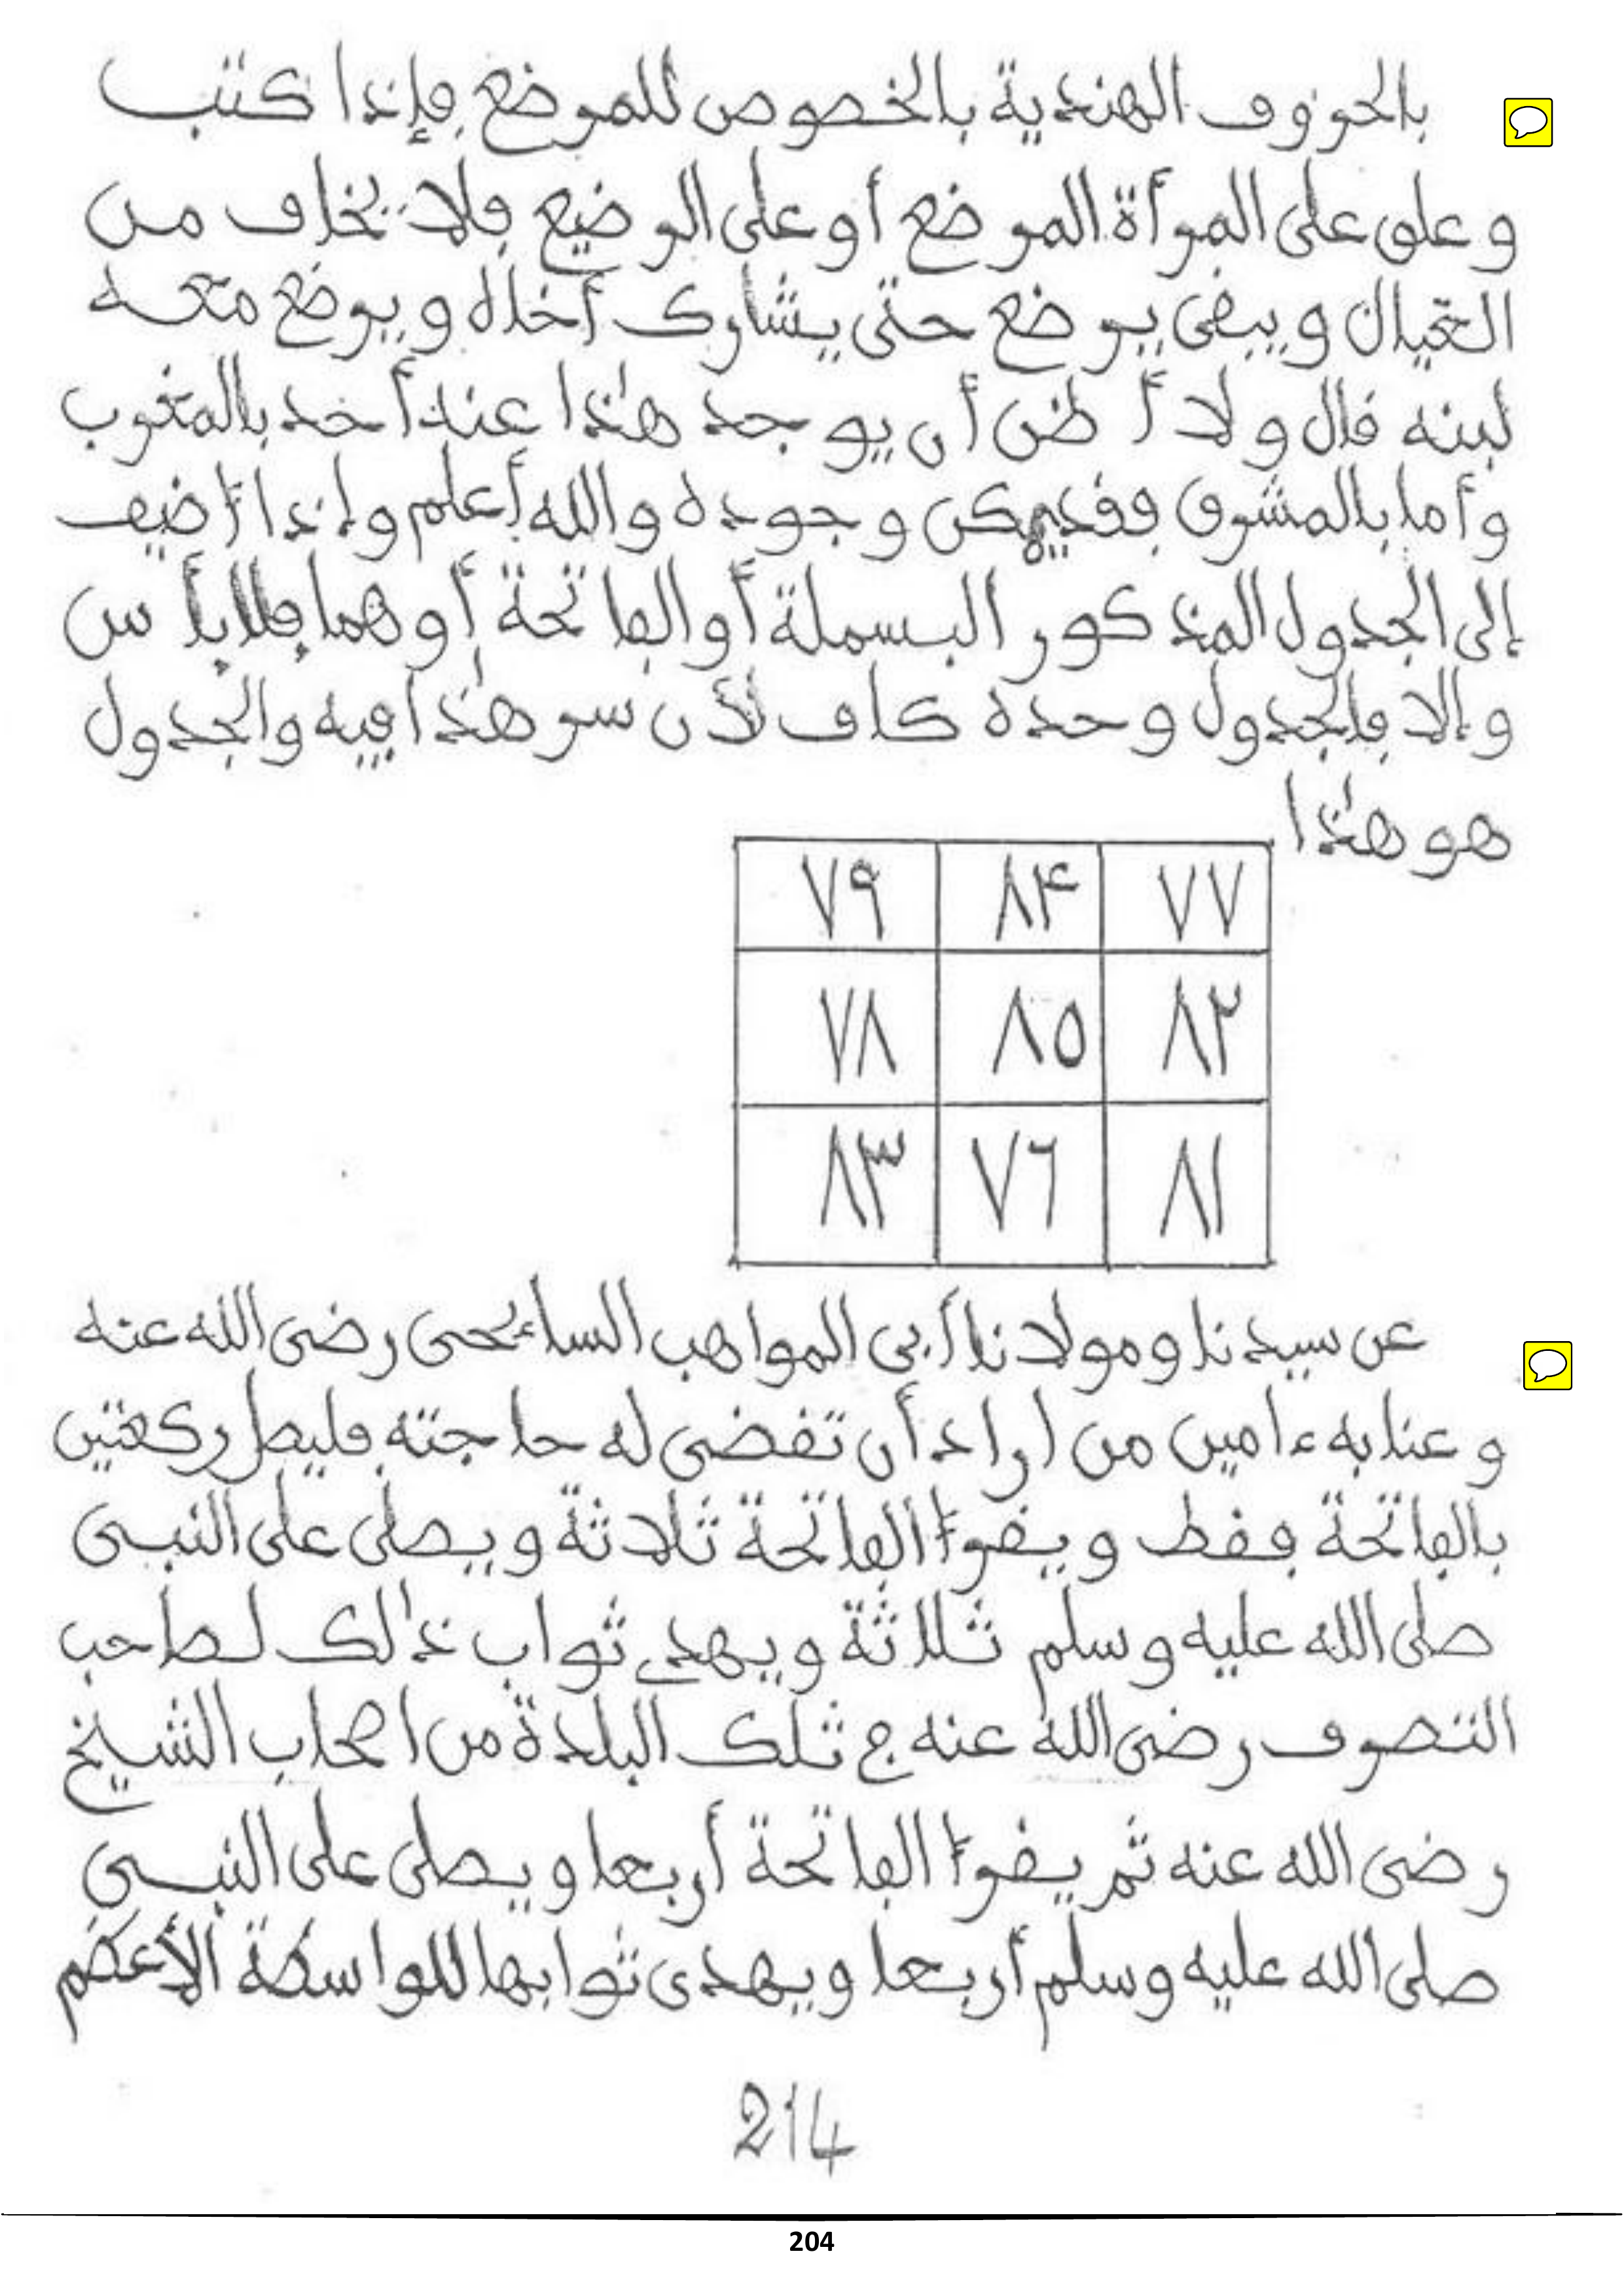 بالحروف الهندية بالخصوص للمرضع فإذا كتب
وعلق على المرأة المرضع أو على الرضيع فلا يخاف من
الغيال ويبقى يرضع حتى يشارك أخاه ويرضع معه
لبنه قال ولا أظن أن يوجد هذا عند أحد بالمغرب
وأما بالمشرق فقد يمكن وجوده والله أعلم وإذا أضيف
إلى الجدول المذكور البسملة أو الفاتحة أو هما فلا بأس
وإلا فالجدول وحده كاف لأن سر هذا فيه والجدول
هو هذا
٧٧ ٨٤ ٧٩
٨٢ ٨٥ ٧٨
٨١ ٧٦ ٨٣
عن سيدنا ومولانا أبي المواهب السائحى رضى الله عنه
وعنا به ءامين من اراد أن تقضى له حاجته فليصل ركعتين
بالفاتحة فقط ويقرأ الفاتحة ثلاثة ويصلى على النبى
صلى الله عليه وسلم ثلاثة ويهدى ثواب ذالك لصاحب
التصوف رضى الله عنه ج تلك البلدة من اصحاب الشيخ
رضى الله عنه ثم يقرأ الفاتحة أربعا ويصلى على النبى
صلى الله عليه وسلم أربعا ويهدى ثوابها للواسطة الأعظم
214
204